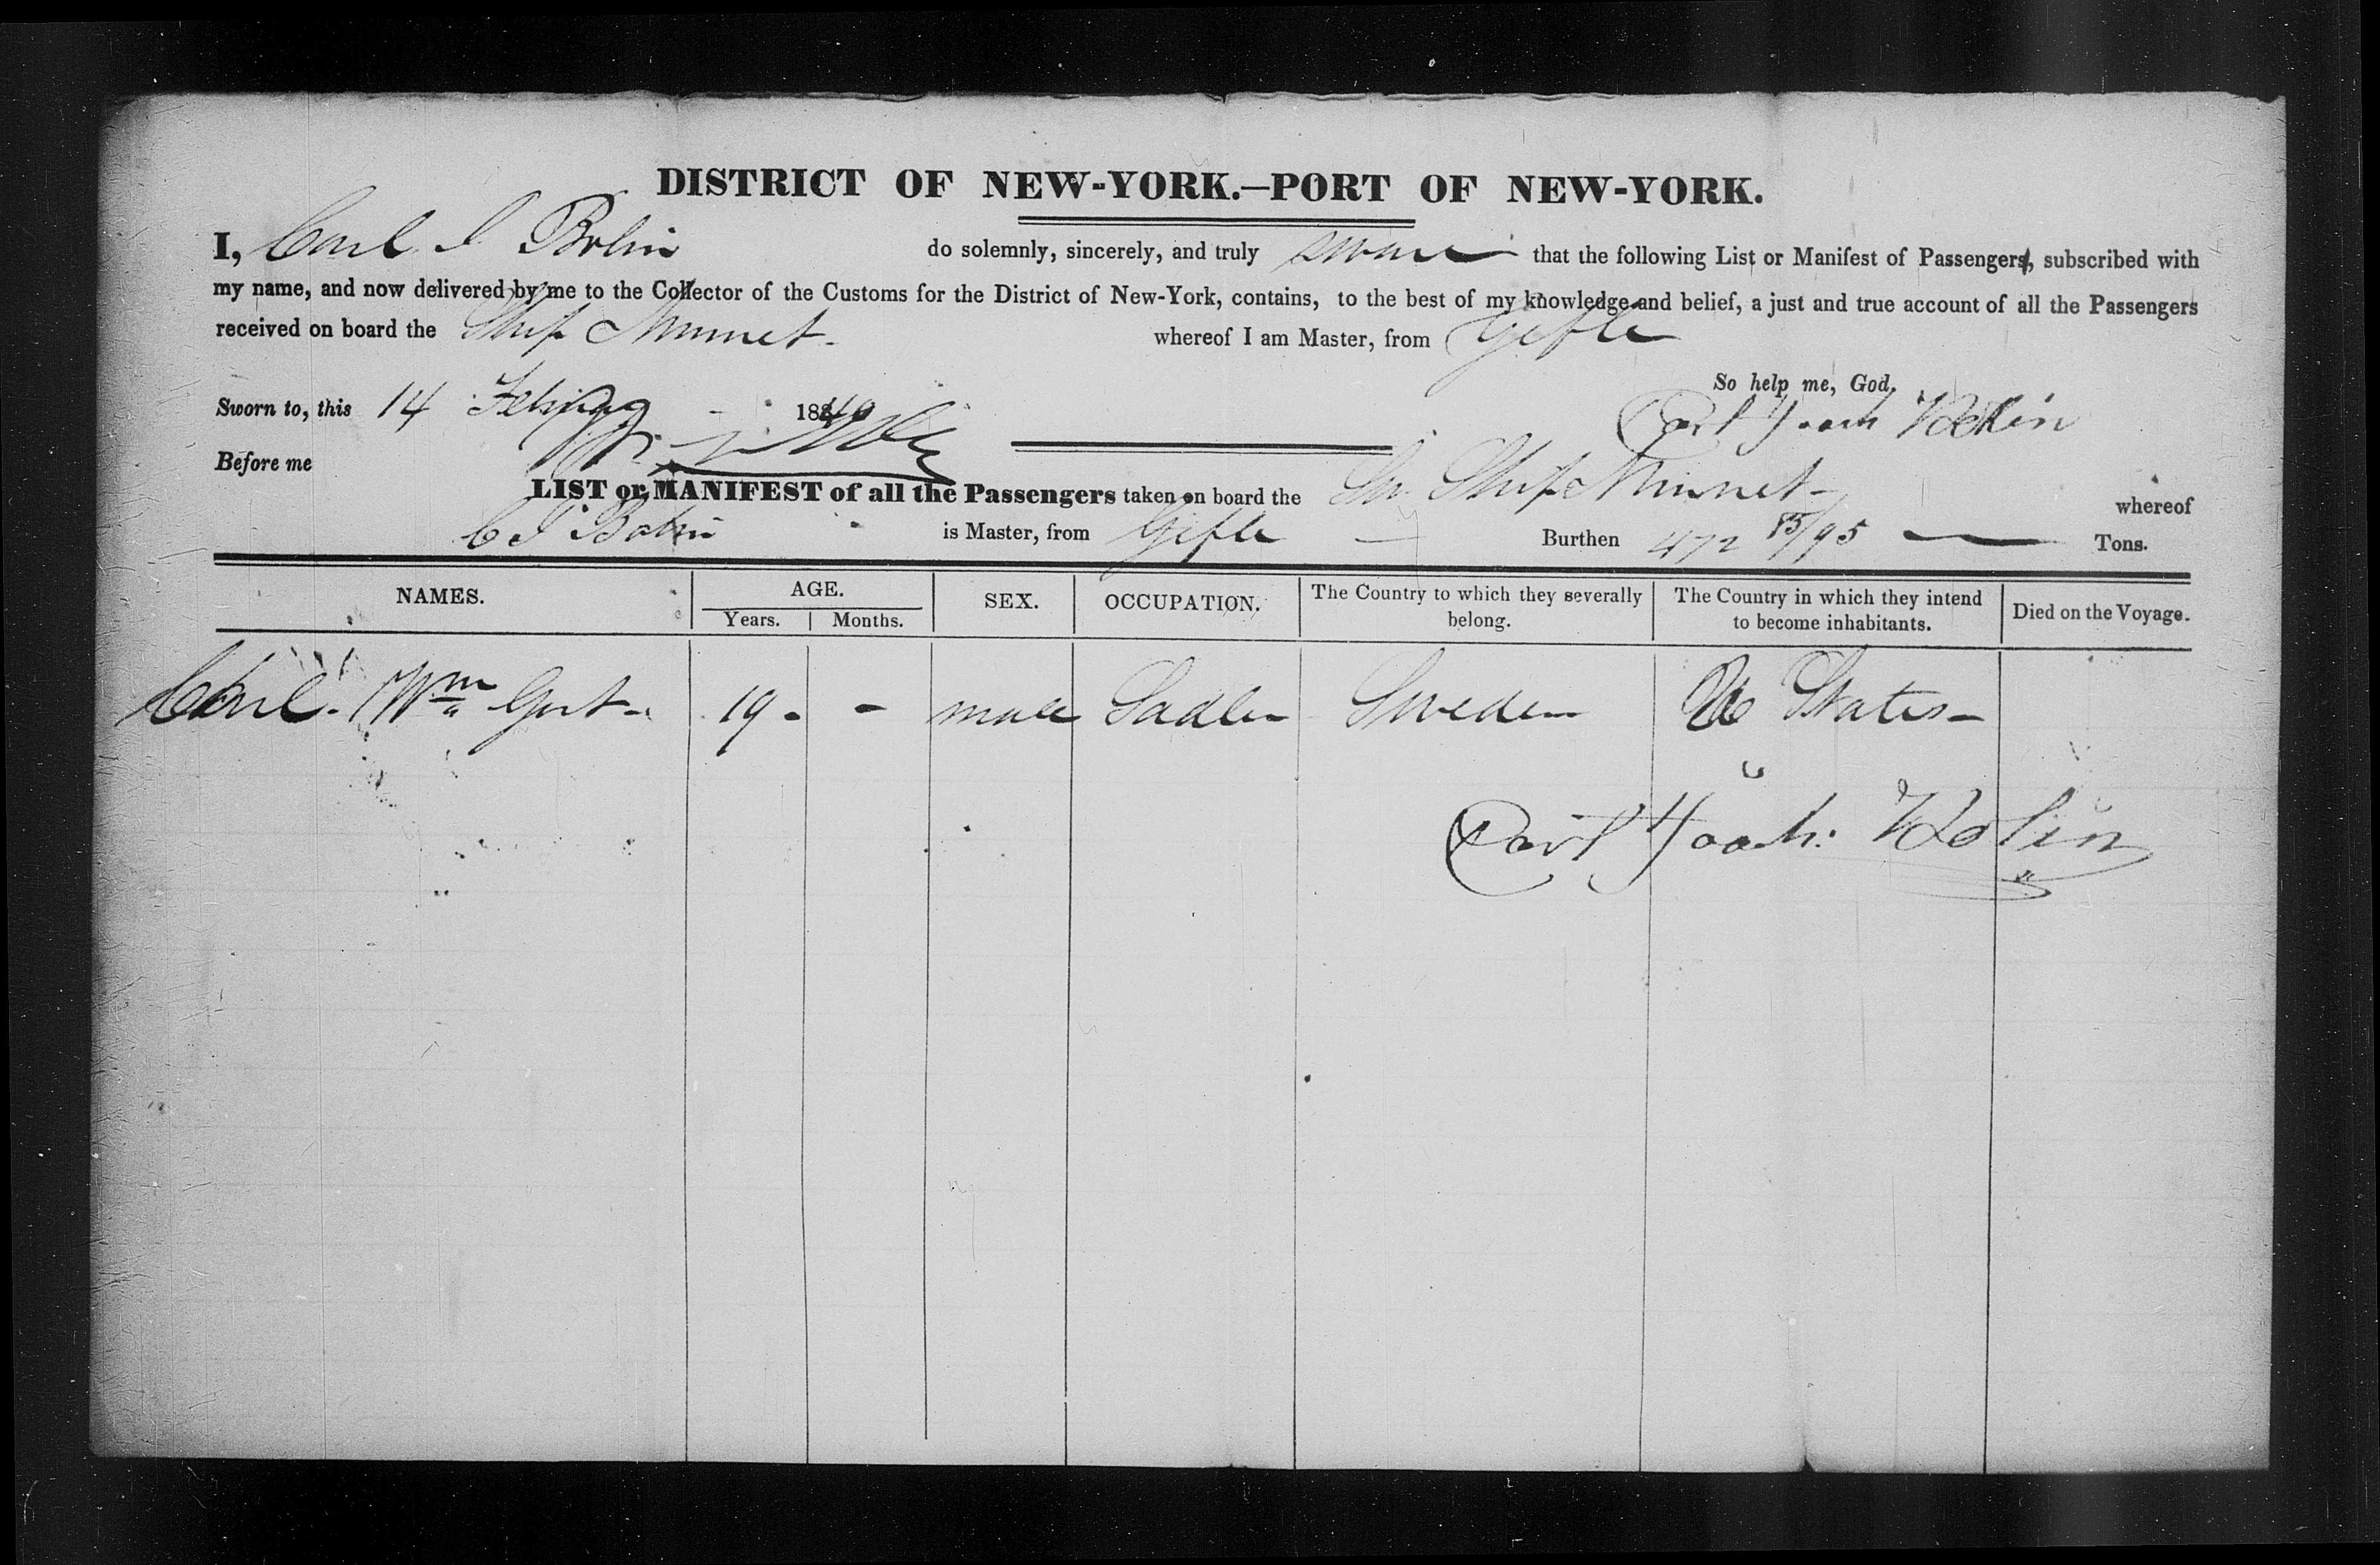 DISTRICT OF NEW-YORK.—PORT OF NEW-YORK.
I, Carl I Bolin do solemnly, sincerely, and truly swear that the following List or Manifest of Passengers, subscribed with
my name, and now delivered by me to the Collector of the Customs for the District of New-York, contains, to the best of my knowledge and belief, a just and true account of all the Passengers
received on board the Ship Minnet. whereof I am Master, from Gefle
So help me, God.
Sworn to, this 14 Feby 1840 Carl Joach Bolin
Before me
LIST or MANIFEST of all the Passengers taken on board the Sw. Ship Minnet whereof
C I Bolin is Master, from Gefle Burthen 472 85/95 Tons.
NAMES. AGE. SEX. OCCUPATION. The Country to which they severally belong. The Country in which they intend to become inhabitants. Died on the Voyage.
Years. Months.
Carl. Wm 19 - male Sadler Sweden U States
Carl Joach: Bolin